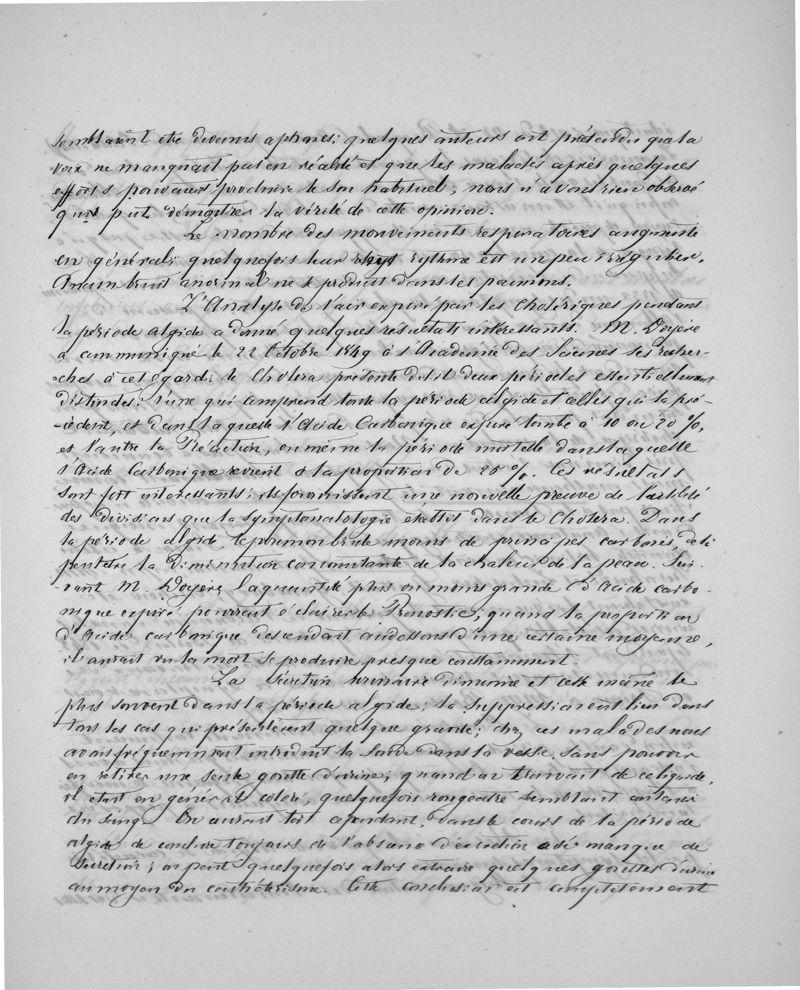 semblaient etre devenus aphones; quelques auteurs ont prétendu que la
voix ne manquait pas en réalité et que les malades après quelques
efforts pouvaient produire le son habituel; nous n'avons rien observé
qui pût démontrer la vérité de cette opinion.
Le nombre des mouvements respiratoires augmente
en général; quelquefois leur rythme est un peu irrégulier.
Aucun bruit anormal ne se produit dans les poumons.
L'Analyse de l'air expiré par les Cholériques pendant
la période algide a donné quelques résultats intéressants. M. Doyère
a communiqué le 22 Octobre 1849 à l'Académie des Sciences ses recher-
ches à cet égard: le Choléra présente dit-il deux périodes essentiellement
distinctes; l'une qui comprend toute la période algide et celles qui la pré-
cèdent, et dans laquelle l'Acide Carbonique expiré tombe à 10 ou 20 %,
et l'autre la Réaction, ou même la période mortelle dans laquelle
l'Acide Carbonique revient à la proportion de 25 %. Ces résultats
sont fort intéressants; ils fournissent une nouvelle preuve de l'utilité
des divisions que la symptomatologie établit dans le Choléra. Dans
la période algide, le poumon brûle moins de principes carbonés, de là
peut être la diminution concomitante de la chaleur de la peau. Sui-
vant M. Doyère, la quantité plus ou moins grande d'Acide carbo-
nique expiré pourrait éclairer le Pronostic; quand la proportion
d'Acide carbonique descendait au dessous d'une certaine moyenne,
il aurait vu la mort se produire presque constamment.
La Sécrétion urinaire diminue et cesse même le
plus souvent dans la période algide; la suppression eut lieu dans
tous les cas qui présentèrent quelque gravité; chez ces malades nous
avons fréquemment introduit la Sonde dans la vessie sans pouvoir
en retirer une seule goutte d'urine; quand on trouvait de ce liquide,
il était en général coloré, quelquefois rougeâtre semblant contenir
du sang. On aurait tort cependant, dans le cours de la période
algide de conclure toujours de l'absence d'excrétion au manque de
Sécrétion; on peut quelquefois alors extraire quelques gouttes d'urine
au moyen du cathétérisme. Cette conclusion est complètement